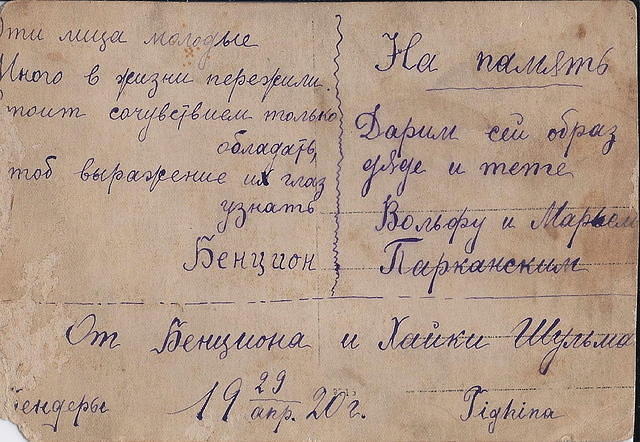 Эти лица молодые
Много в жизни пережили.
Стоит сочувствием только
обладать,
чтоб выражение их глаз
узнать
Бенцион
На память
Дарим сей образ
дяде и тете
Вольфу и Марьем
Парканским
От Бенциона и Хайки Шульма
Бендеры 19 29/апр. 20 г. Tighina